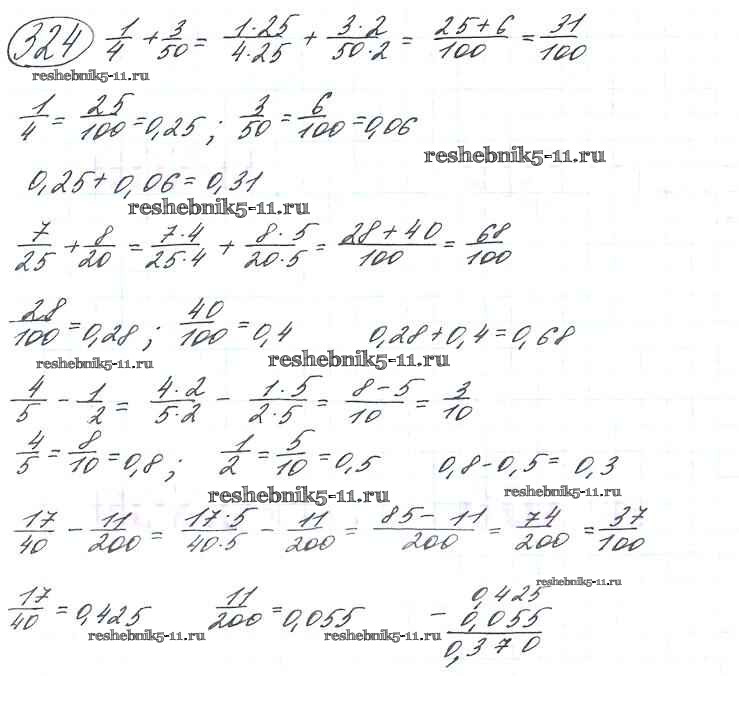 324 1/4 + 3/50 = 1·25/4·25 + 3·2/50·2 = 25+6/100 = 31/100
reshebnik5-11.ru
1/4 = 25/100 = 0,25; 3/50 = 6/100 = 0,06
reshebnik5-11.ru
0,25 + 0,06 = 0,31
reshebnik5-11.ru
7/25 + 8/20 = 7·4/25·4 + 8·5/20·5 = 28+40/100 = 68/100
28/100 = 0,28; 40/100 = 0,4 0,28 + 0,4 = 0,68
reshebnik5-11.ru reshebnik5-11.ru
4/5 - 1/2 = 4·2/5·2 - 1·5/2·5 = 8-5/10 = 3/10
4/5 = 8/10 = 0,8; 1/2 = 5/10 = 0,5 0,8 - 0,5 = 0,3
reshebnik5-11.ru reshebnik5-11.ru
17/40 - 11/200 = 17·5/40·5 - 11/200 = 85-11/200 = 74/200 = 37/100
reshebnik5-11.ru
17/40 = 0,425 11/200 = 0,055 0,425
- 0,055
reshebnik5-11.ru reshebnik5-11.ru
0,370